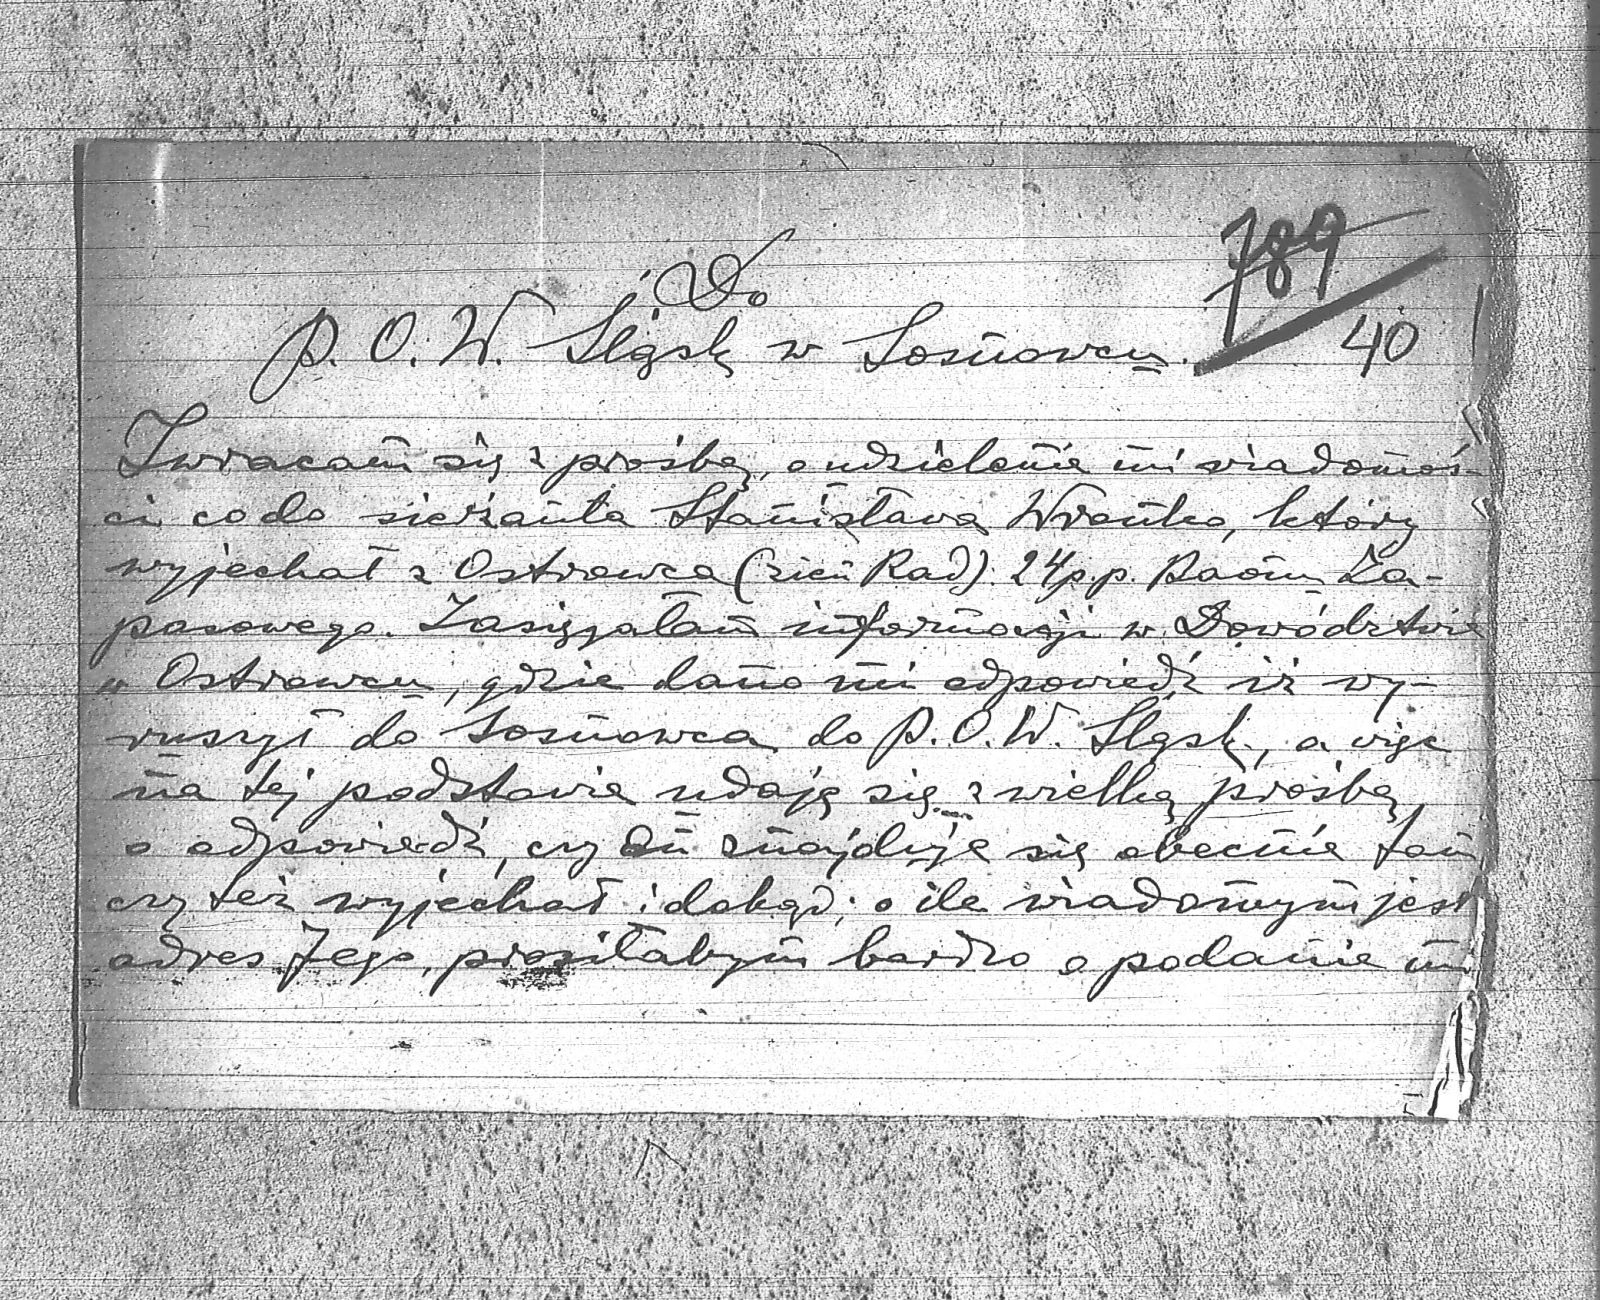 789
40
Do
P. O. W. Śląsk w Sosnowcu.
Zwracam się z prośbą, o udzielenie mi wiadomoś-
ci co do sierżanta Stanisława Wronko, który
wyjechał z Ostrowca (ziem Rad). 24 p.p. Baonu Za-
pasowego. Zasięgałam informacji w Dowództwie
w Ostrowcu, gdzie dano mi odpowiedź iż wy-
ruszył do Sosnowca do P.O.W. Śląsk, a więc
na tej podstawie udaję się z wielką prośbą
o odpowiedź, czy on znajduje się obecnie tam
czy też wyjechał i dokąd; o ile wiadomym jest
adres Jego, prosiłabym bardzo o podanie mi